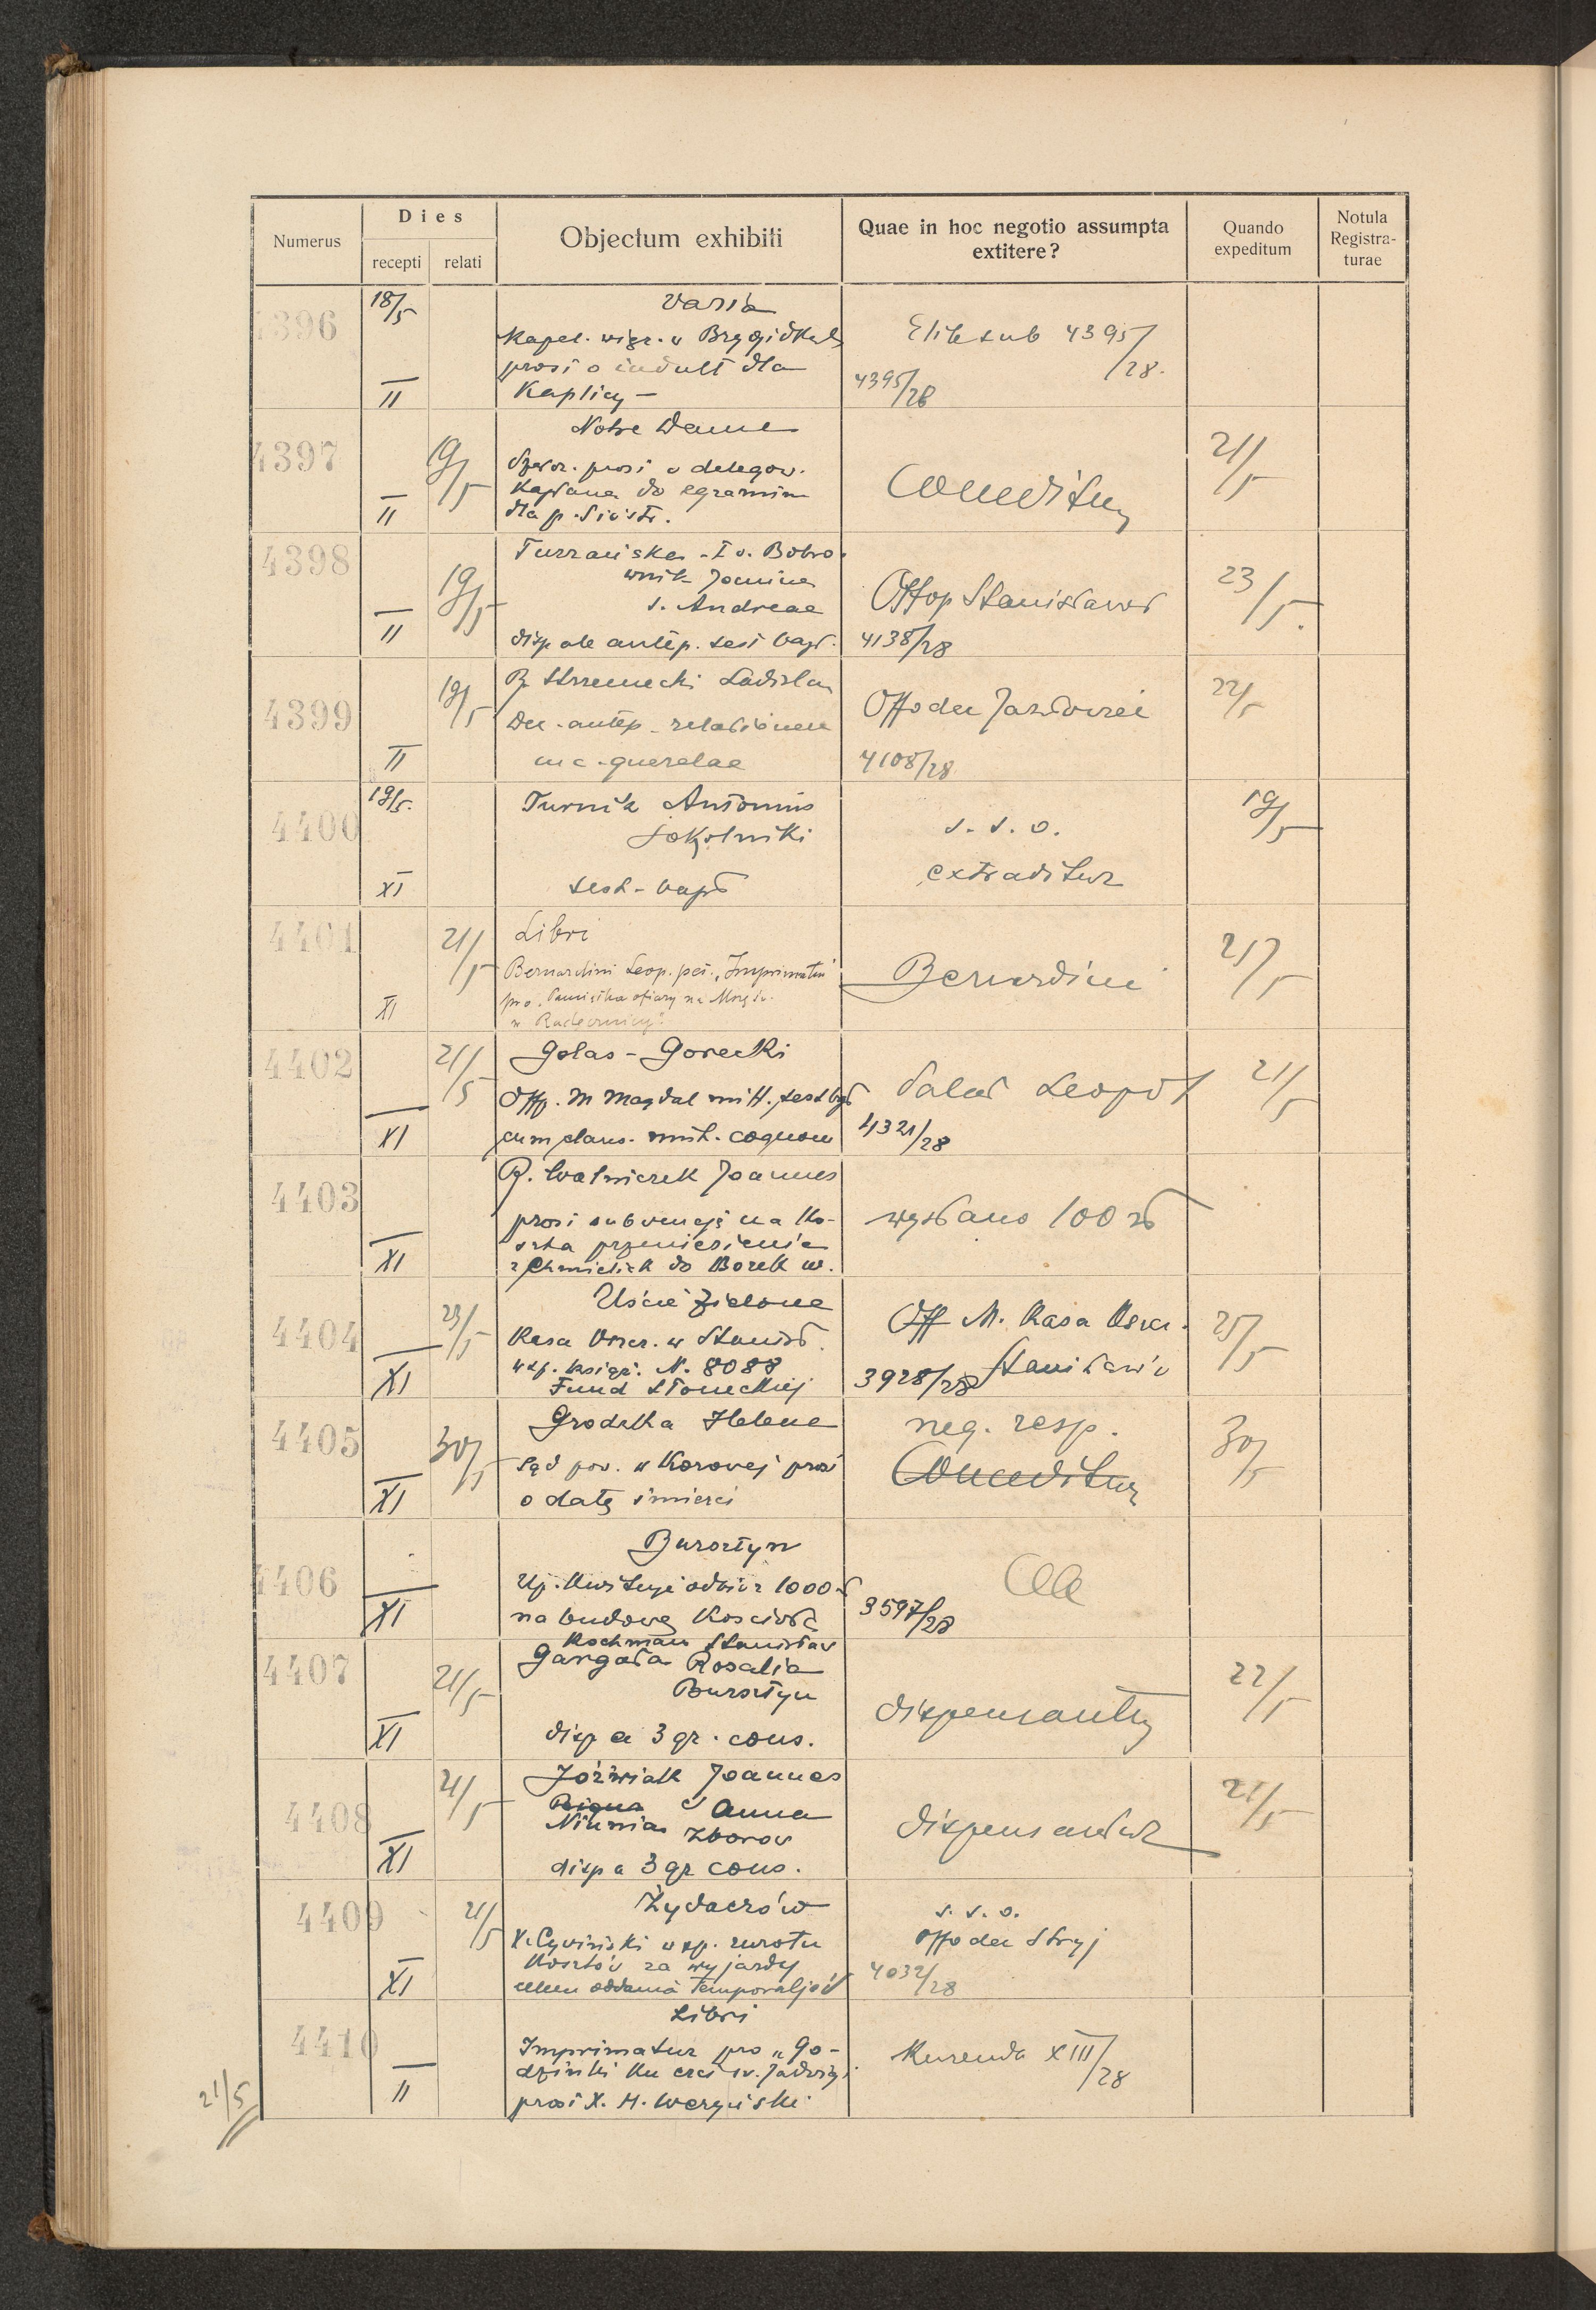 Numerus
Dies
recepti relati
Objectum exhibiti
Quae in hoc negotio assumpta
extitere?
Quando
expeditum
Notula
Registra-
turae
4396
18/5
II
Varia
Kapel. więz. u Brygidkach
prosi o indult dla
Kaplicy —
sub 4395/28.
4395/28
4397
19/5
II
Notre Dame
prosi o delegow.
Kapłana do egzamin
dla p. Sióstr.
Conceditur
21/5
4398
19/5
II
Turzańska I v. Bobro-
wnik Janina
s. Andreae
disp ale antep. test bapt.
Offop Stanisławów
4138/28
23/5.
4399
19/5
II
R. Strzemecki Ladislau
Dec. antep. relationem
in c. querelae
Offo dec Jazłowiec
4108/28
22/5
4400
19/5.
XI
Turnik Antonius
Sokolniki
test. bapt
s. s. o.
extraditur
19/5
4401
21/5
XI
Libri
Bernardini Leop. pet. „Imprimatur"
pro „Pamiątka ofiary na Mszę św.
w Radecznicy".
Bernardini
21/5
4402
21/5
XI
Golas - Gorecki
Offp. M Magdal mitt. test bpt
cum claus. mut. cognom
Leopol
4321/28
21/5
4403
XI
R. Walniczek Joannes
prosi subwencję na ko-
szta przeniesienia
z Chmielisk do Borek w.
wysłano 100 zł
4404
23/5
XI
Uście Zielone
Kasa Oszcz. w Stanisł.
wsp. książ. N. 8088
Fund Słoneckiej
Off M. Kasa Oszcz.
Stanisławów
3928/28
25/5
4405
30/5
XI
Grodzka Helena
Sąd pow. w Kozowej prosi
o datę śmierci
neg. resp.
Conceditur
30/5
4406
XI
Bursztyn
Up. kwituje odbiór 1000 zł
na budowę Kościoła
Aa
3597/28
4407
21/5
XI
Kochman Stanisław
Gargała Rosalia
Bursztyn
disp a 3 gr. cons.
dispensantur
22/5
4408
21/5
XI
Jóźwiak Joannes
Anna
Zborów
disp a 3 gr cons.
dispensantur
21/5
4409
21/5
XI
Żydaczów
X. Cywiński wsp. zwrotu
kosztów za wyjazdy
celem oddania temporaljów
s. s. o.
Offo dec Stryj
4032/28
4410
II
Libri
Imprimatur pro „Go-
dzinki ku czci św. Jadwigi
prosi X. H. Weryński
Kurenda XIII/28
21/5